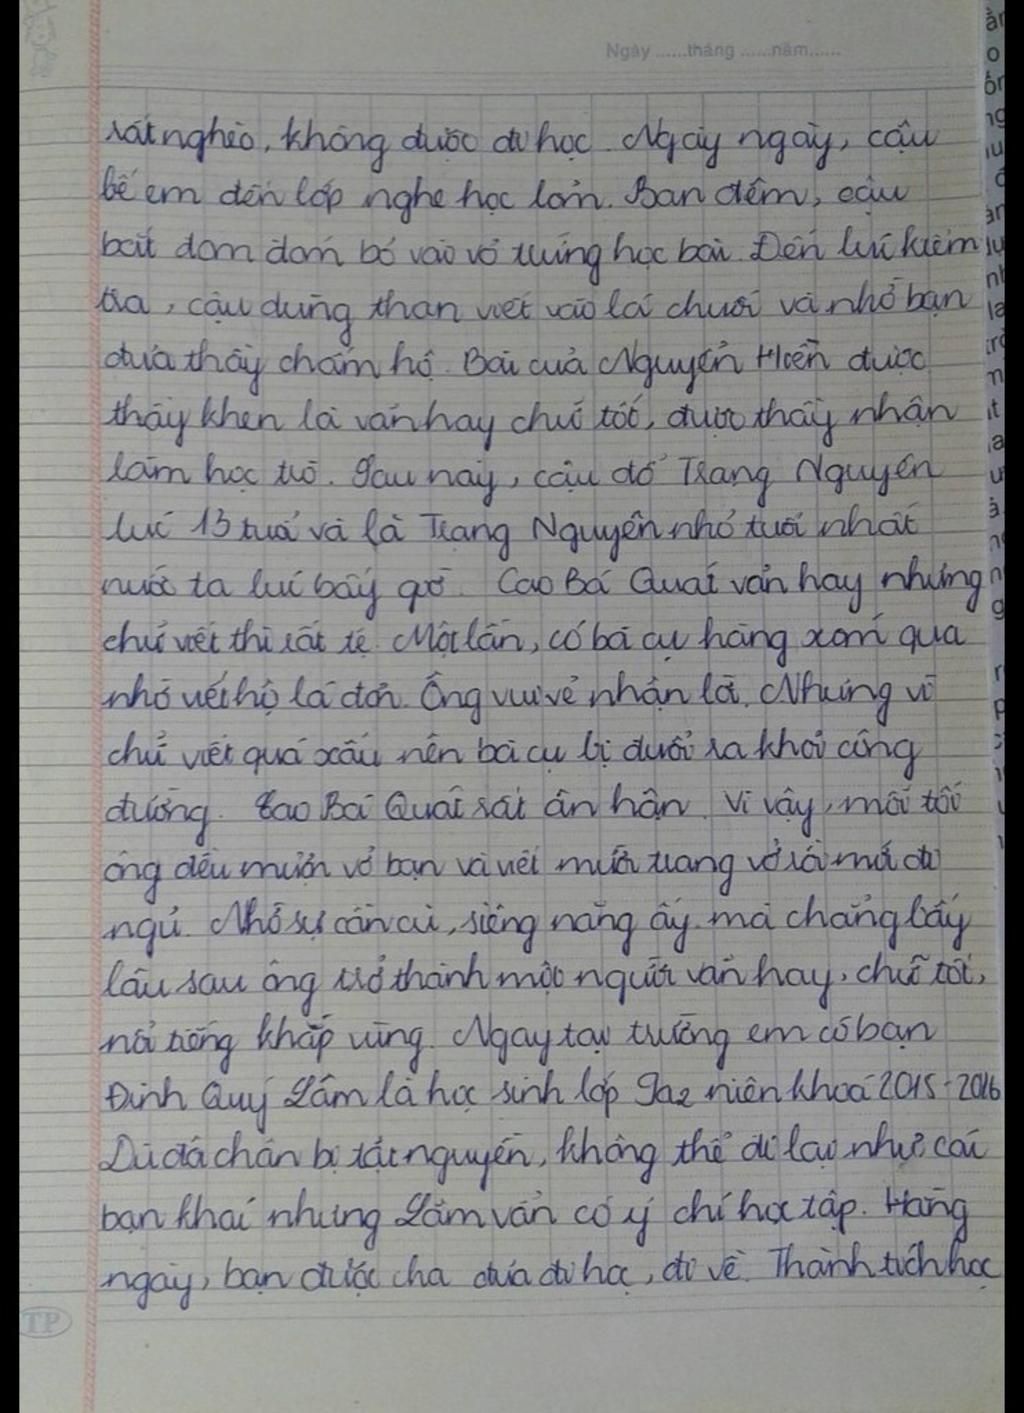 Ngày ......tháng ......năm......
rất nghèo, không được đi học. Ngày ngày, cậu
bé em đến lớp nghe học lỏm. Ban đêm, cậu
bắt đom đóm bỏ vào vỏ trứng học bài. Đến lúc kiểm
tra, cậu dùng than viết vào lá chuối và nhờ bạn
đưa thầy chấm hộ. Bài của Nguyễn Hiền được
thầy khen là văn hay chữ tốt, được thầy nhận
làm học trò. Sau này, cậu đỗ Trạng Nguyên
lúc 13 tuổi và là Trạng Nguyên nhỏ tuổi nhất
nước ta lúc bấy giờ. Cao Bá Quát văn hay nhưng
chữ viết thì rất tệ. Một lần, có bà cụ hàng xóm qua
nhờ viết hộ lá đơn. Ông vui vẻ nhận lời. Nhưng vì
chữ viết quá xấu nên bà cụ bị đuổi ra khỏi công
đường. Cao Bá Quát rất ân hận. Vì vậy, mỗi tối
ông đều mượn vở bạn và viết mười trang vở rồi mới đi
ngủ. Nhờ sự cần cù, siêng năng ấy mà chẳng bấy
lâu sau ông trở thành một người văn hay, chữ tốt,
nổi tiếng khắp vùng. Ngay tại trường em có bạn
Đinh Quý Lâm là học sinh lớp 9a2 niên khoá 2015-2016
Dù đá chân bị tật nguyền, không thể đi lại như các
bạn khác nhưng Lâm vẫn có ý chí học tập. Hàng
ngày, bạn được cha đưa đi học, đi về. Thành tích học
TP